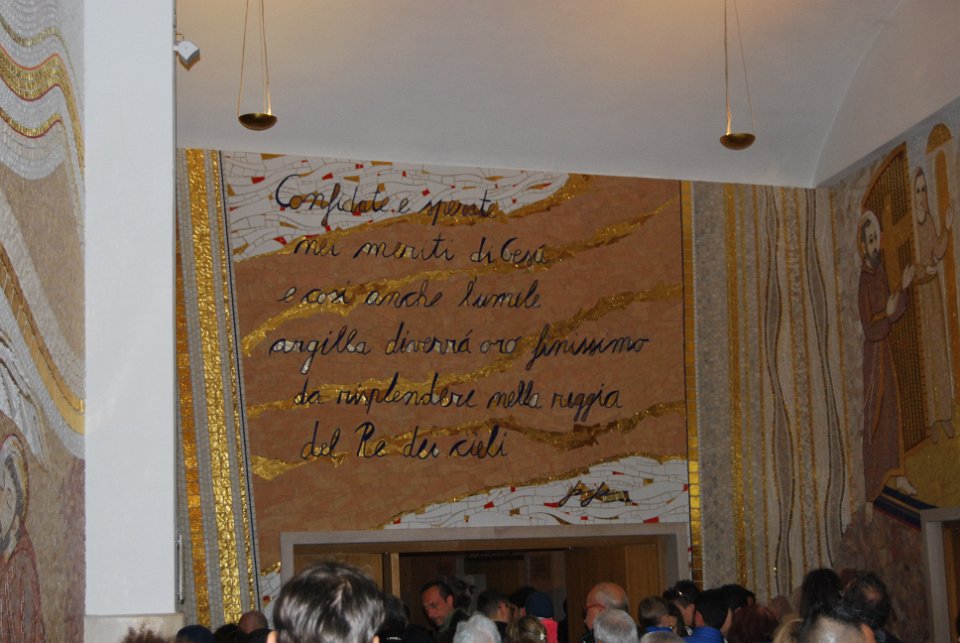 Confidate e sperate
nei meriti di Gesú
e così anche l'umile
argilla diverrá oro finissimo
da risplendere nella reggia
del Re dei cieli